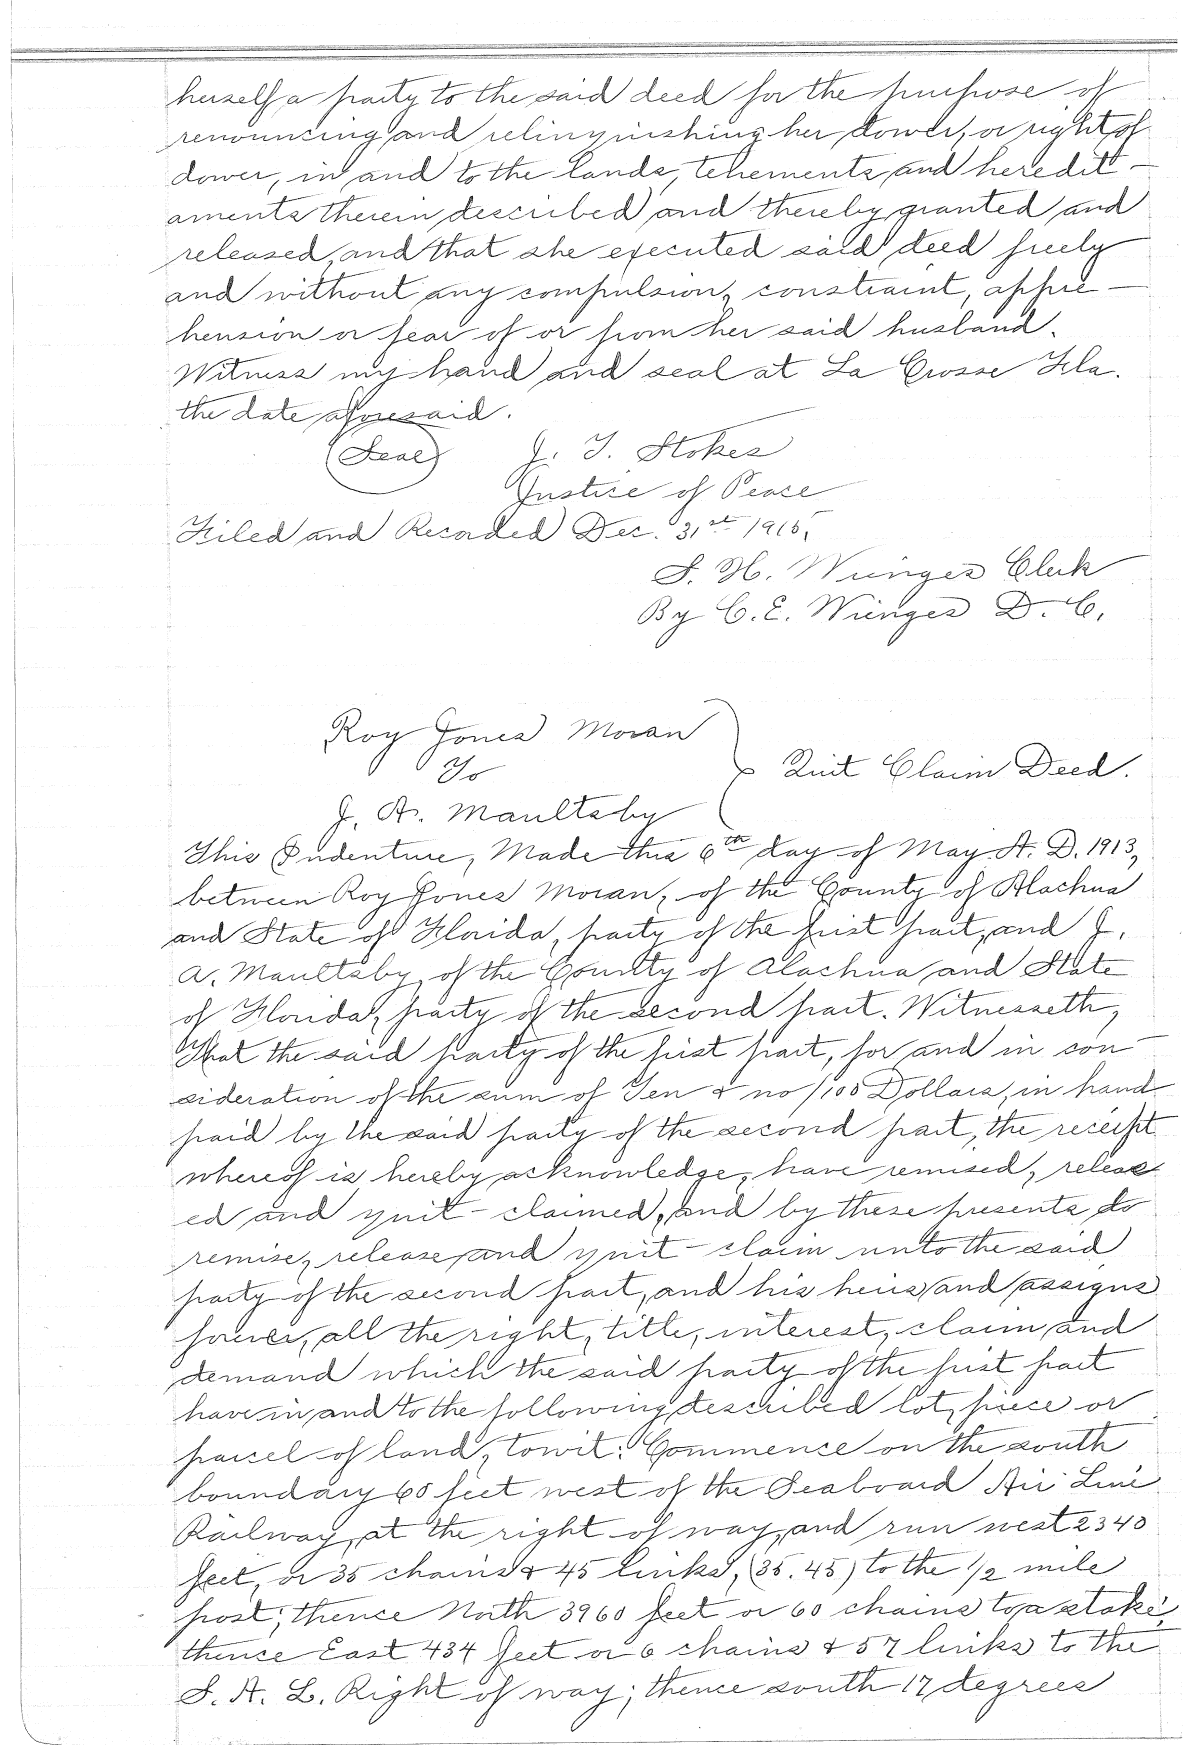 herself a party to the said deed for the purpose of
renouncing and relinquishing her dower, or right of
dower, in and to the lands, tenements, and heredit-
aments therein described and thereby granted and
released, and that she executed said deed freely
and without any compulsion, constraint, appre-
hension or fear of or from her said husband.
Witness my hand and seal at La Crosse Fla.
the date aforesaid.
(Seal) J. T. Stokes
Justice of Peace
Filed and Recorded Dec. 31st 1915,
S. H. Wienges Clerk
By C. E. Wienges D. C.
Roy Jones Moran
To
Quit Claim Deed.
J. A. Maultsby
This Indenture, Made this 6th day of May A. D. 1913,
between Roy Jones Moran, of the County of Alachua
and State of Florida, party of the first part, and J.
A. Maultsby, of the County of Alachua and State
of Florida, party of the second part. Witnesseth,
That the said party of the first part, for and in con-
sideration of the sum of Ten & no/100 Dollars, in hand
paid by the said party of the second part, the receipt
whereof is hereby acknowledge, have remised, releas
ed and quit-claimed, and by these presents do
remise, release and quit-claim unto the said
party of the second part, and his heirs and assigns
forever, all the right, title, interest, claim and
demand which the said party of the first part
have in and to the following described lot, piece or
parcel of land, towit: Commence on the south
boundary 60 feet west of the Seaboard Air Line
Railway, at the right of way, and run west 2340
feet, or 35 chains & 45 links, (35.45) to the 1/2 mile
post; thence North 3960 feet or 60 chains to a stake,
thence East 434 feet or 6 chains & 57 links to the
S. A. L. Right of way; thence south 17 degrees